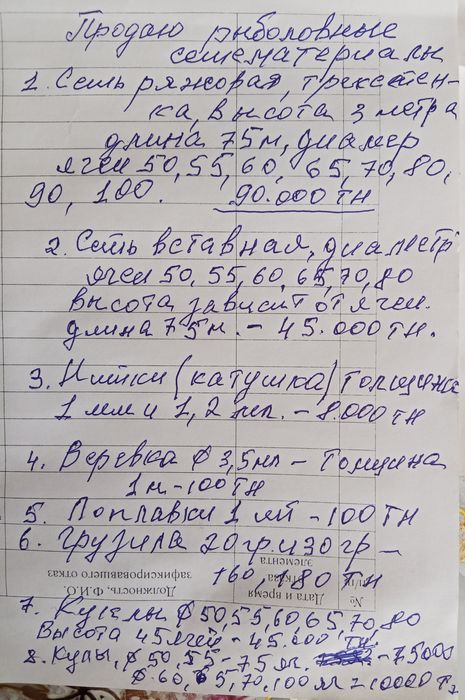 Продаю рыболовные
сетематериалы
1. Сеть ряжовая, трехстен-
ка, высота 3 метра
длина 75м, диамер
ячеи 50, 55, 60, 65, 70, 80,
90, 100. 90.000 тн
2. Сеть вставная, диаметр
ячеи 50, 55, 60, 65, 70, 80
высота зависит от ячеи.
длина 75м. - 45.000 тн.
3. Нитки (катушка) толщина
1 мм и 1,2 мм. - 8.000 тн
4. Веревка ф 3,5мм - толщина
1м - 100 тн
5. Поплавки 1 шт - 100 тн
6. Грузила 20гр. и 30 гр -
160, 180 тн
элемента
зафиксировавшего отказ
Должность, Ф.И.О.
отказа
Дата и время
№
7. Куклы ф 50,55,60,65,70,80
Высота 45 ячей - 45.000 тн.
8. Куклы, ф 50, 55 - 75м. - 7500
ф 60, 65, 70, 100 м = 10000 т.